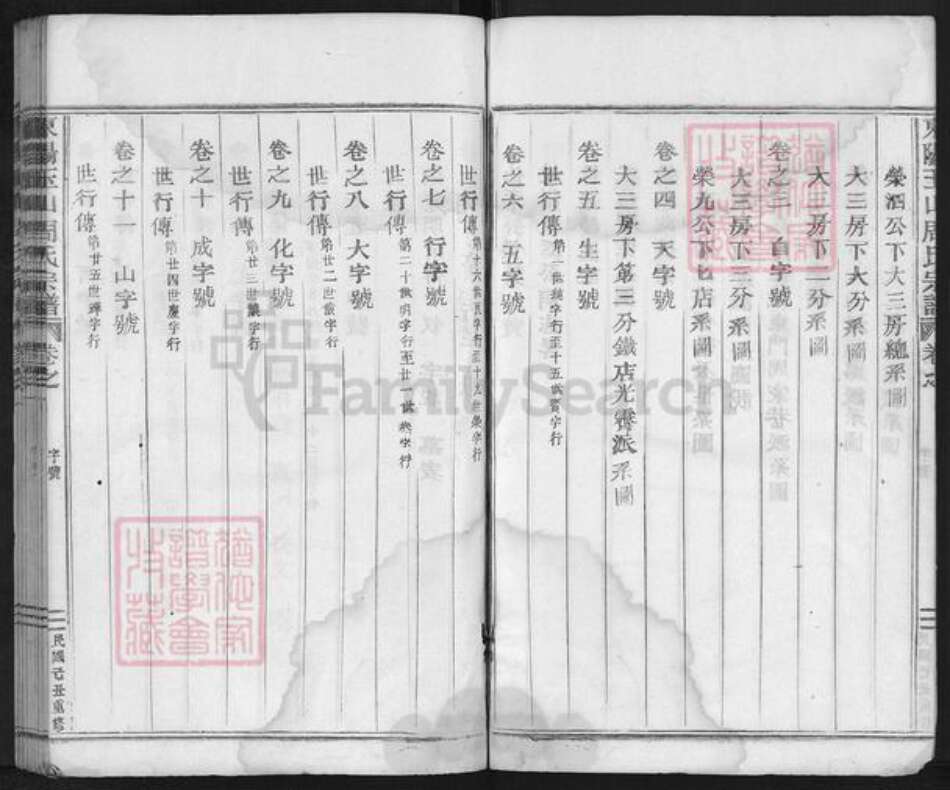 東陽玉山周氏宗譜 卷之
榮四公下大三房總系圖
大三房下大分系圖
大三房下二分系圖
卷之三 自字號
大三房下三分系圖
榮九公下七店系圖
卷之四 天字號
大三房下第三分鐵店光霽派系圖
卷之五 生字號
世行傳
卷之六 五字號
世行傳
卷之七 行字號
世行傳 第二十世明字行至廿一世 字行
卷之八 大字號
世行傳 第廿二世 字行
卷之九 化字號
世行傳 第廿三世 字行
卷之十 成字號
世行傳 第廿四世慶字行
卷之十一 山字號
世行傳 第廿五世 字行
東陽玉山周氏宗譜 卷之
字號
民國己丑重修
FamilySearch
譜學會
收藏